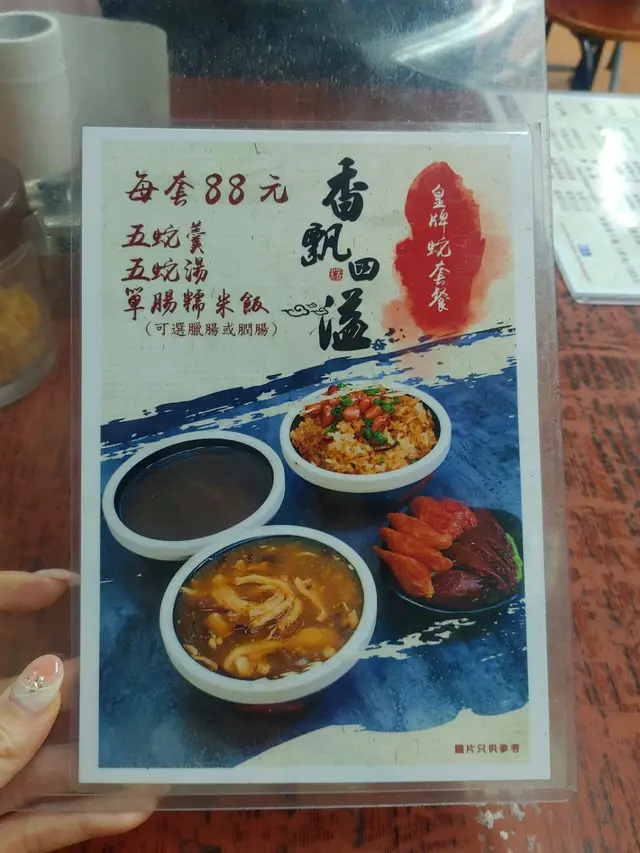 每套88元
五蛇羹
五蛇湯
單腸糯米飯
(可選臘腸或膶腸)
香飄四溢
皇牌蛇套餐
圖片只供參考